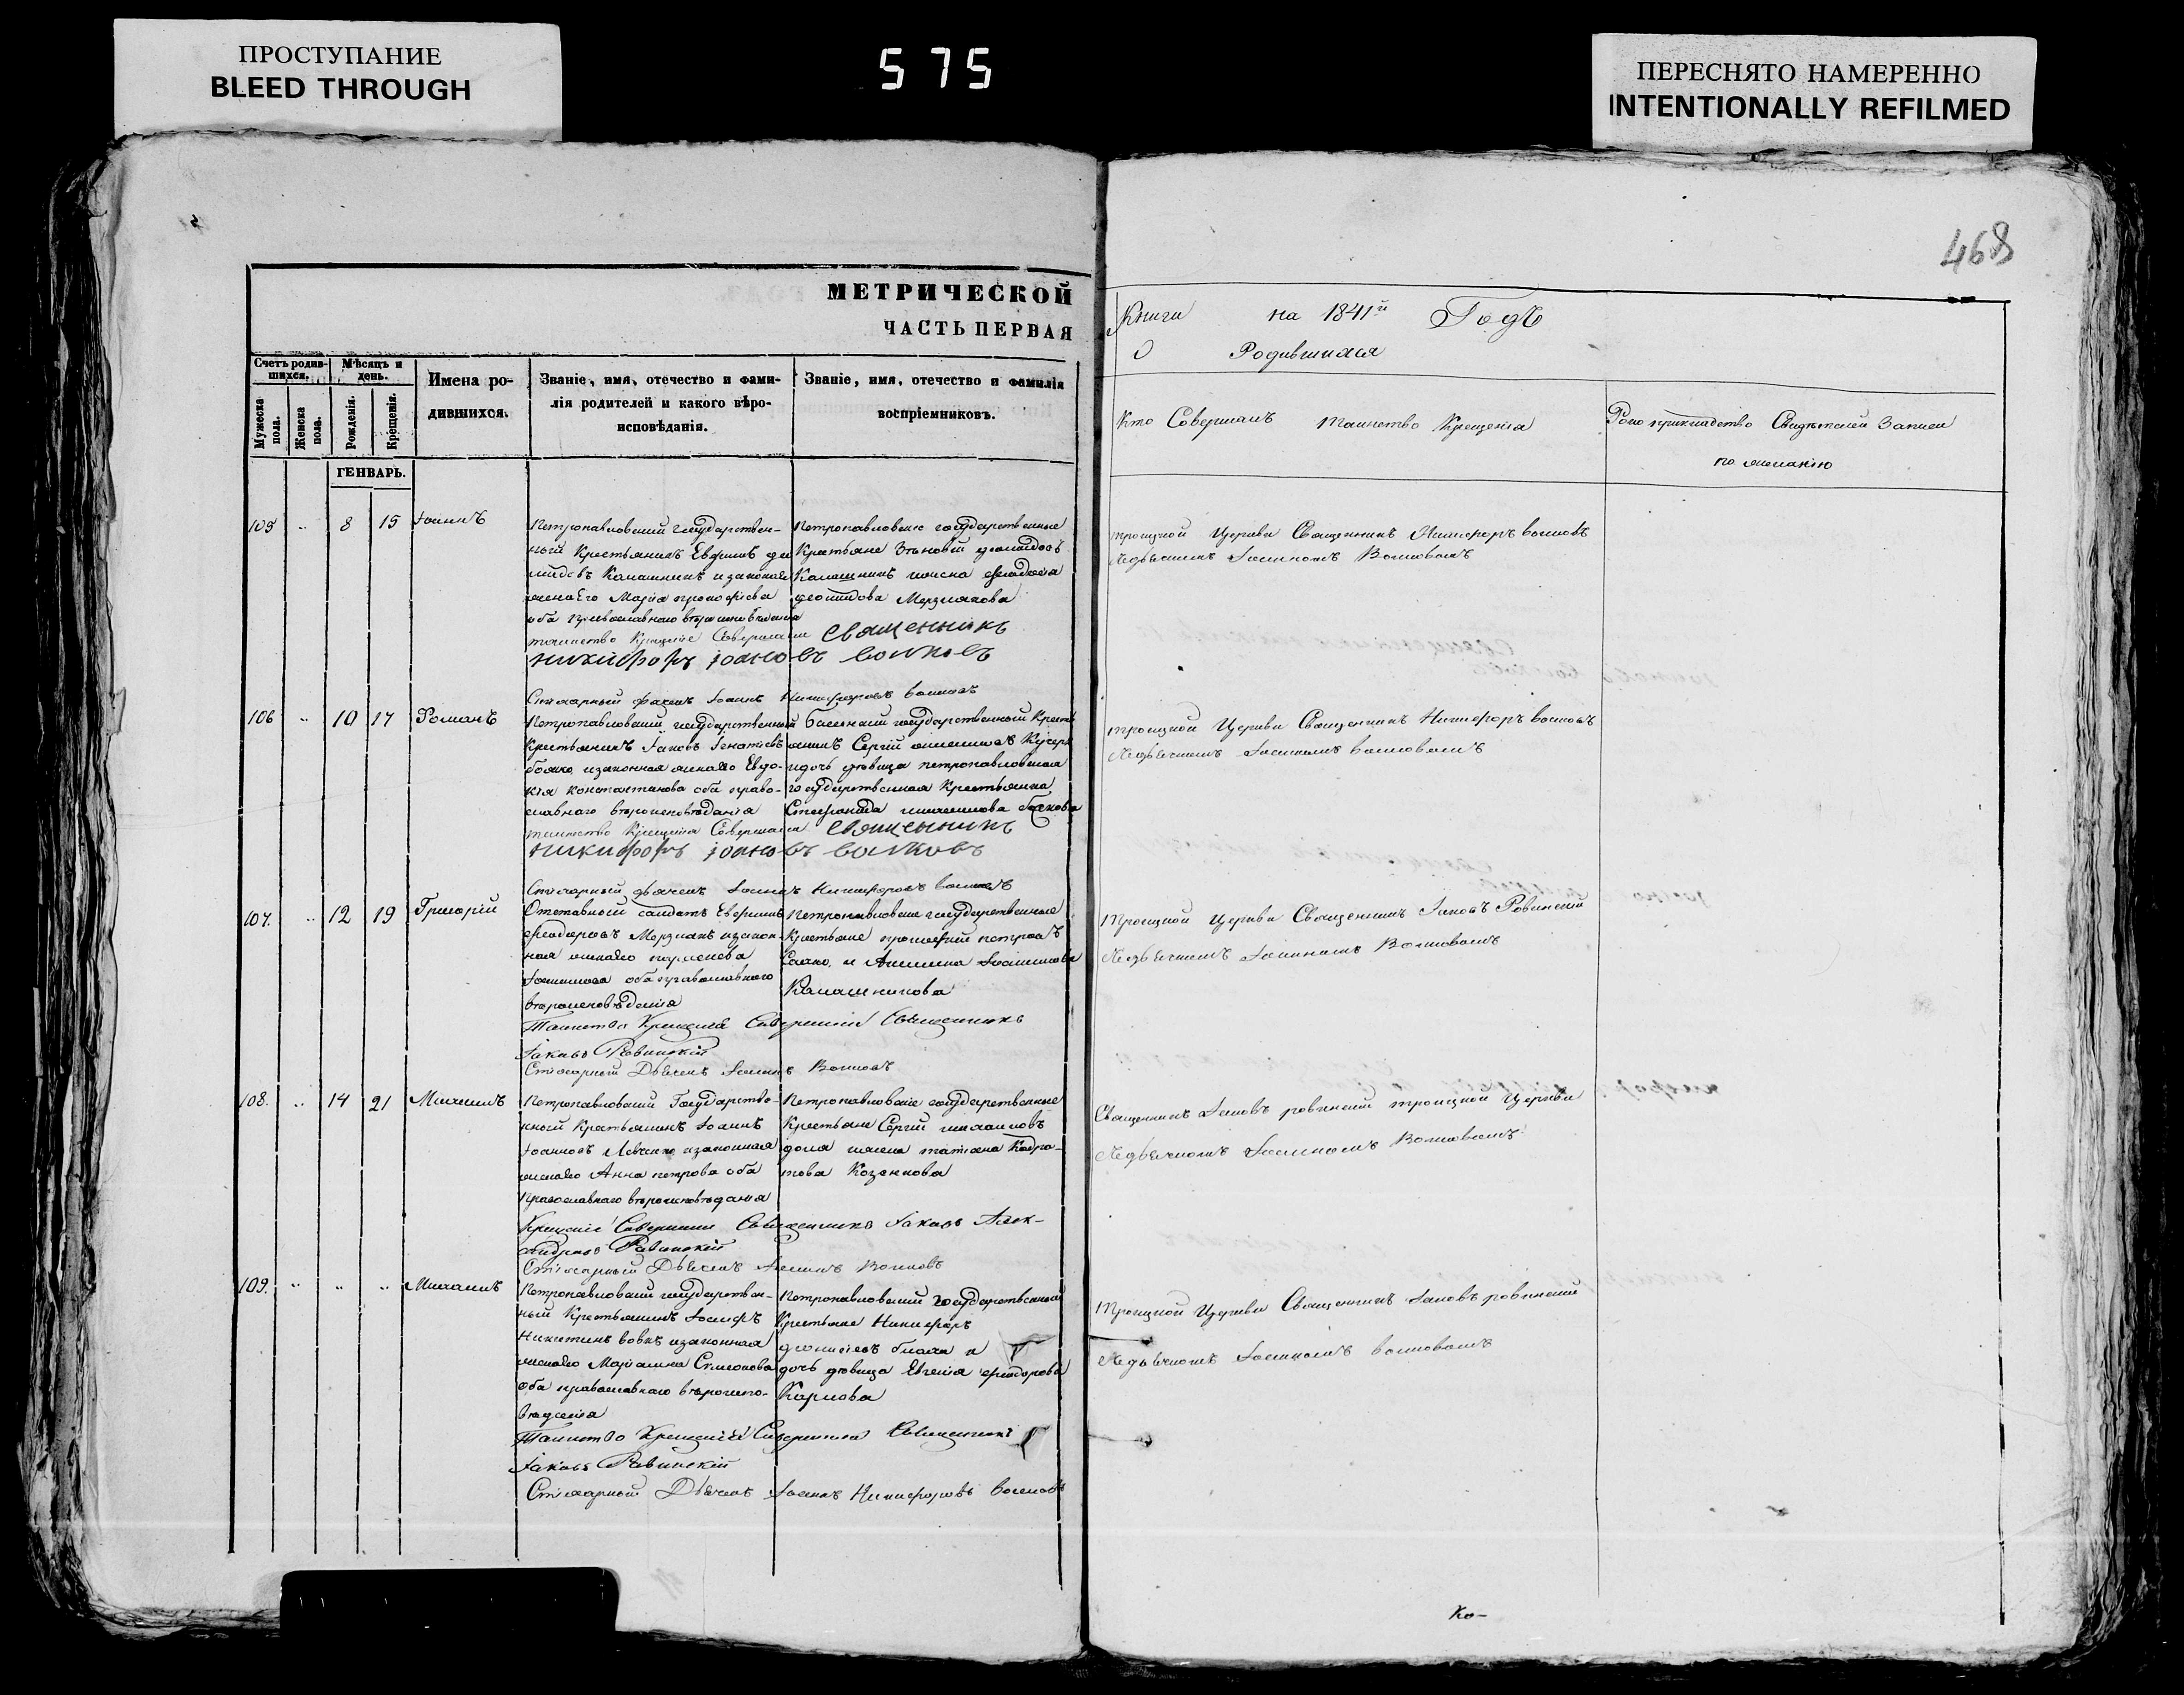 ПРОСТУПАНИЕ
BLEED THROUGH
575
ПЕРЕСНЯТО НАМЕРЕННО
INTENTIONALLY REFILMED
468
МЕТРИЧЕСКОЙ
ЧАСТЬ ПЕРВАЯ
Книги на 1841й Годъ
О Родившихся
Счетъ родив-
шихся.
Мужеска пола.
Женска пола.
Мѣсяцъ и
день.
Рожденія.
Крещенія.
Имена ро-
дившихся.
Званіе, имя, отечество и фами-
лія родителей и какого вѣро-
исповѣданія.
Званіе, имя, отечество и фамилія
воспріемниковъ.
Кто Совершалъ Таинство Крещенія
Рукоприкладство Свидѣтелей Записи
по желанію
ГЕНВАРЬ.
105 8 15 Іоаннъ
Петропавловскій государствен-
ный Крестьянинъ Евфимъ
Калашникъ и законная
жена его Марія прокофіева
оба православнаго вѣроисповѣданія
таинство Крещенія Совершалъ священникъ
никифоръ іоановъ волковъ
Стихарный дьячекъ Іоаннъ Никифоровъ волковъ
Петропавловскіе государственные
Крестьяне Зѣновій
Калашникъ
Мерзлякова
троицкой Церкви Священникъ Никифоръ волковъ
съ дьячкомъ Іоанномъ Волковымъ
106 10 17 Романъ
Петропавловскій государственный
Крестьянинъ Іаковъ Игнатіевъ
бойко и законная жена его Евдо-
кія константинова оба право-
славнаго вѣроисповѣданія
таинство Крещенія Совершалъ священникъ
никифоръ іоановъ волковъ
Стихарный дьячекъ Іоаннъ Никифоровъ волковъ
государственный Кресть-
янинъ Сергій
дочь дѣвица петропавловская
государственная Крестьянка
Стефанида
троицкой Церкви Священникъ Никифоръ волковъ
съ дьячкомъ Іоанномъ волковымъ
107. 12 19 Григорій
Отставной солдатъ Евфимъ
феодоровъ Мерзлякъ и закон-
ная жена его
оба православнаго
вѣроисповѣданія
Таинство Крещенія Совершилъ Священникъ
Іаковъ Ровинскій
Стихарный Дьячекъ Іоаннъ Волковъ
Петропавловскіе государственные
Крестьяне прокофій петровъ
и Акилина
Калашникова
Троицкой Церкви Священникъ Іаковъ Ровинскій
съ дьячкомъ Іоанномъ Волковымъ
108. 14 21 Михаилъ
Петропавловскій Государстве-
нный Крестьянинъ Іоаннъ
Іоанновъ Левченко и законная
жена его Анна петрова оба
Православнаго вѣроисповѣданія
Крещеніе Совершилъ Священникъ Іаковъ Алек-
сандровъ Ровинскій
Стихарный Дьячекъ Іоаннъ Волковъ
Петропавловскіе государственные
Крестьяне Сергій михайловъ
татіана Кодра-
това Козакова
Священникъ Іаковъ ровинскій троицкой Церкви
съ дьячкомъ Іоанномъ Волковымъ
109. Михаилъ
Петропавловскій государствен-
ный Крестьянинъ Іосифъ
Никитинъ вовкъ и законная
жена его Маріамна Симонова
оба православнаго вѣроиспо-
вѣданія
Таинство Крещенія Совершилъ Священникъ
Іаковъ Ровинскій
Стихарный Дьячекъ Іоаннъ Никифоровъ волковъ
Петропавловскій государственный
крестьяне Никифоръ
діонисіевъ и
дочь дѣвица Евгенія феодорова
Карпова
Троицкой Церкви Священникъ Іаковъ ровинскій
съ дьячкомъ Іоанномъ волковымъ
Ко-